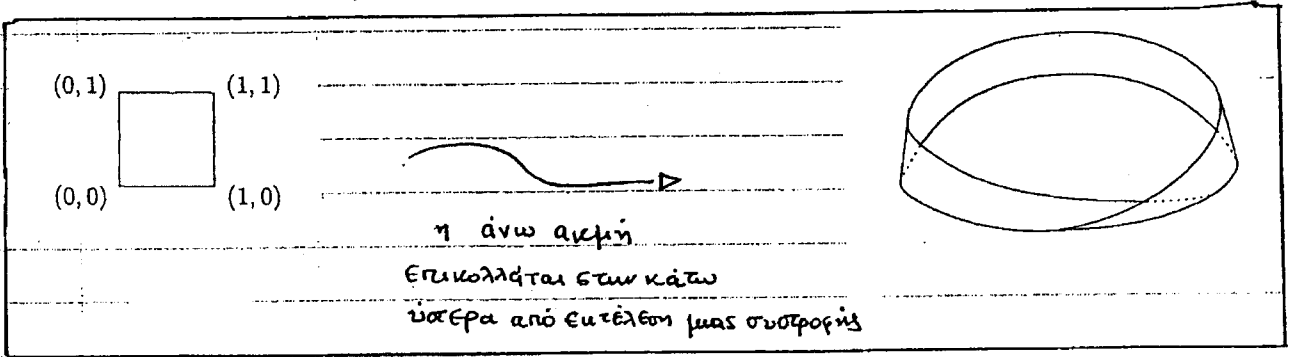 (0, 1) (1, 1)
(0, 0) (1, 0)
η άνω ακμή
επικολλάται στην κάτω
ύστερα από εκτέλεση μιας συστροφής